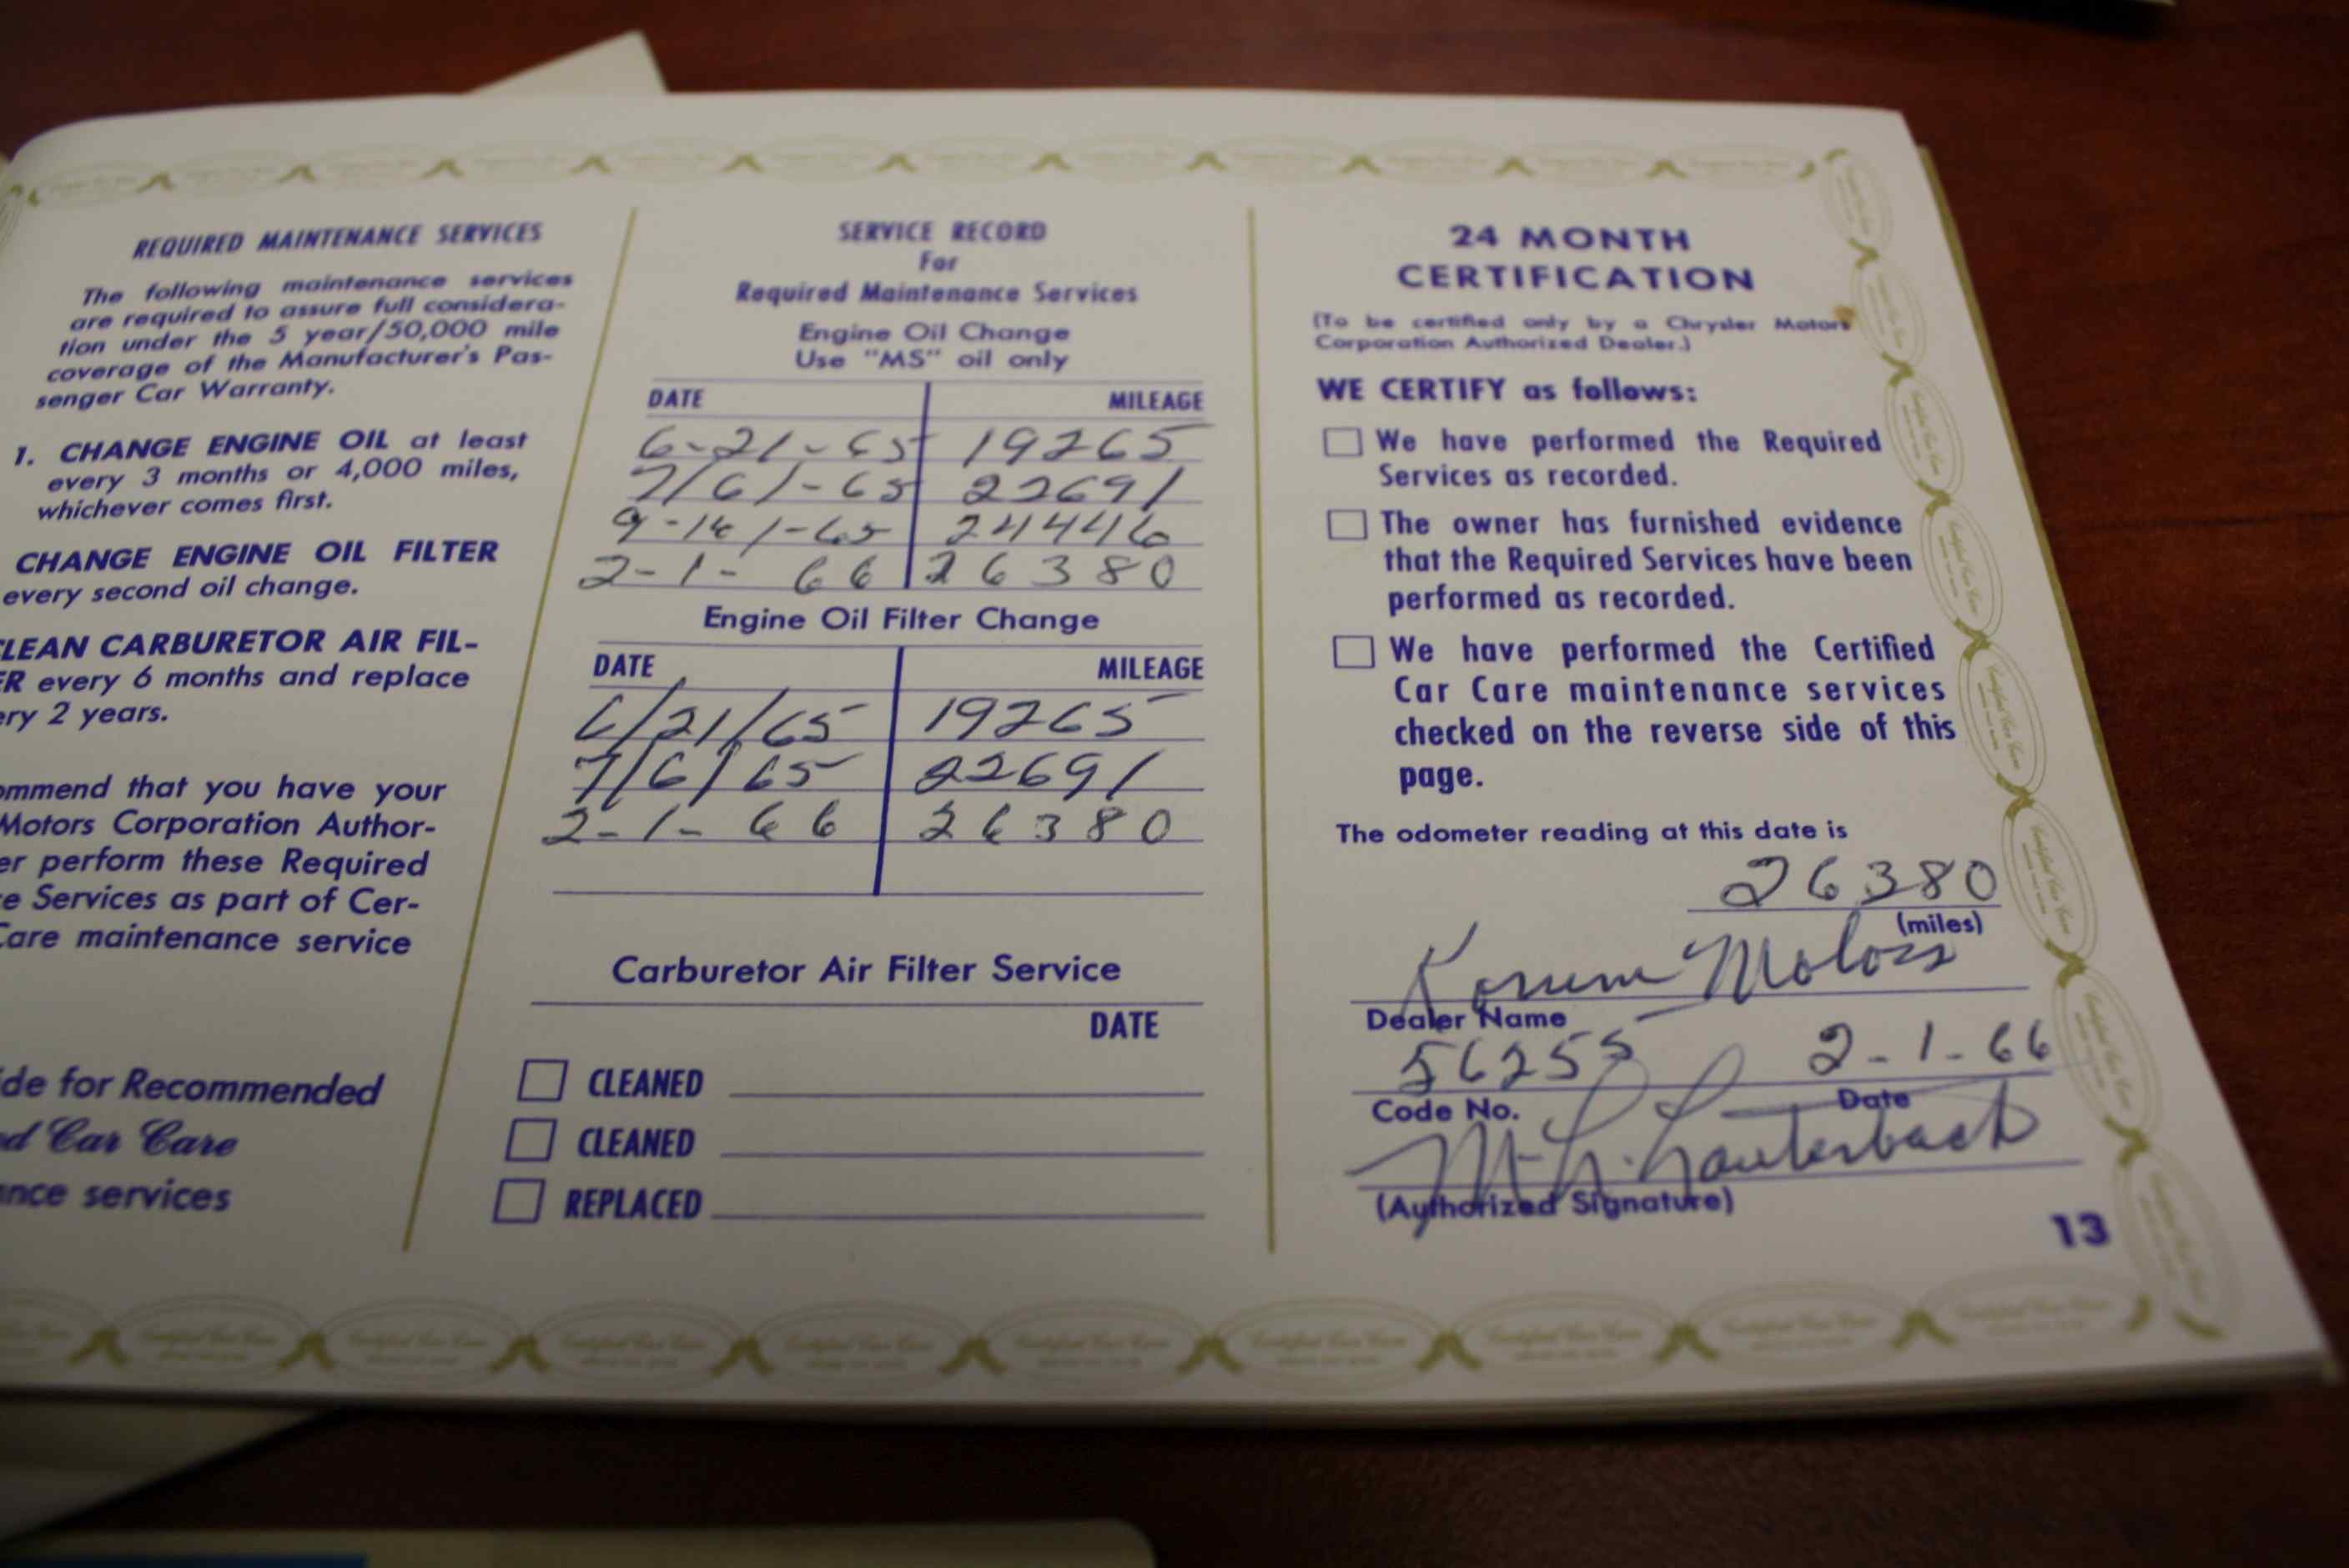 REQUIRED MAINTENANCE SERVICES
The following maintenance services
are required to assure full considera-
tion under the 5 year/50,000 mile
coverage of the Manufacturer's Pas-
senger Car Warranty.
1. CHANGE ENGINE OIL at least
every 3 months or 4,000 miles,
whichever comes first.
CHANGE ENGINE OIL FILTER
every second oil change.
LEAN CARBURETOR AIR FIL-
ER every 6 months and replace
ery 2 years.
ommend that you have your
Motors Corporation Author-
er perform these Required
e Services as part of Cer-
Care maintenance service
ide for Recommended
d Car Care
ance services
SERVICE RECORD
For
Required Maintenance Services
Engine Oil Change
Use "MS" oil only
DATE MILEAGE
6-21-65 19265
7/6/-65 22691
9-14/-65 24446
2-1-66 26380
Engine Oil Filter Change
DATE MILEAGE
6/21/65 19265
7/6/65 22691
2-1-66 26380
Carburetor Air Filter Service
DATE
CLEANED
CLEANED
REPLACED
24 MONTH
CERTIFICATION
(To be certified only by a Chrysler Motors
Corporation Authorized Dealer.)
WE CERTIFY as follows:
We have performed the Required
Services as recorded.
The owner has furnished evidence
that the Required Services have been
performed as recorded.
We have performed the Certified
Car Care maintenance services
checked on the reverse side of this
page.
The odometer reading at this date is
26380
(miles)
Korum Motors
Dealer Name
56255 2-1-66
Code No. Date
M. L. Lauterbach
(Authorized Signature)
13